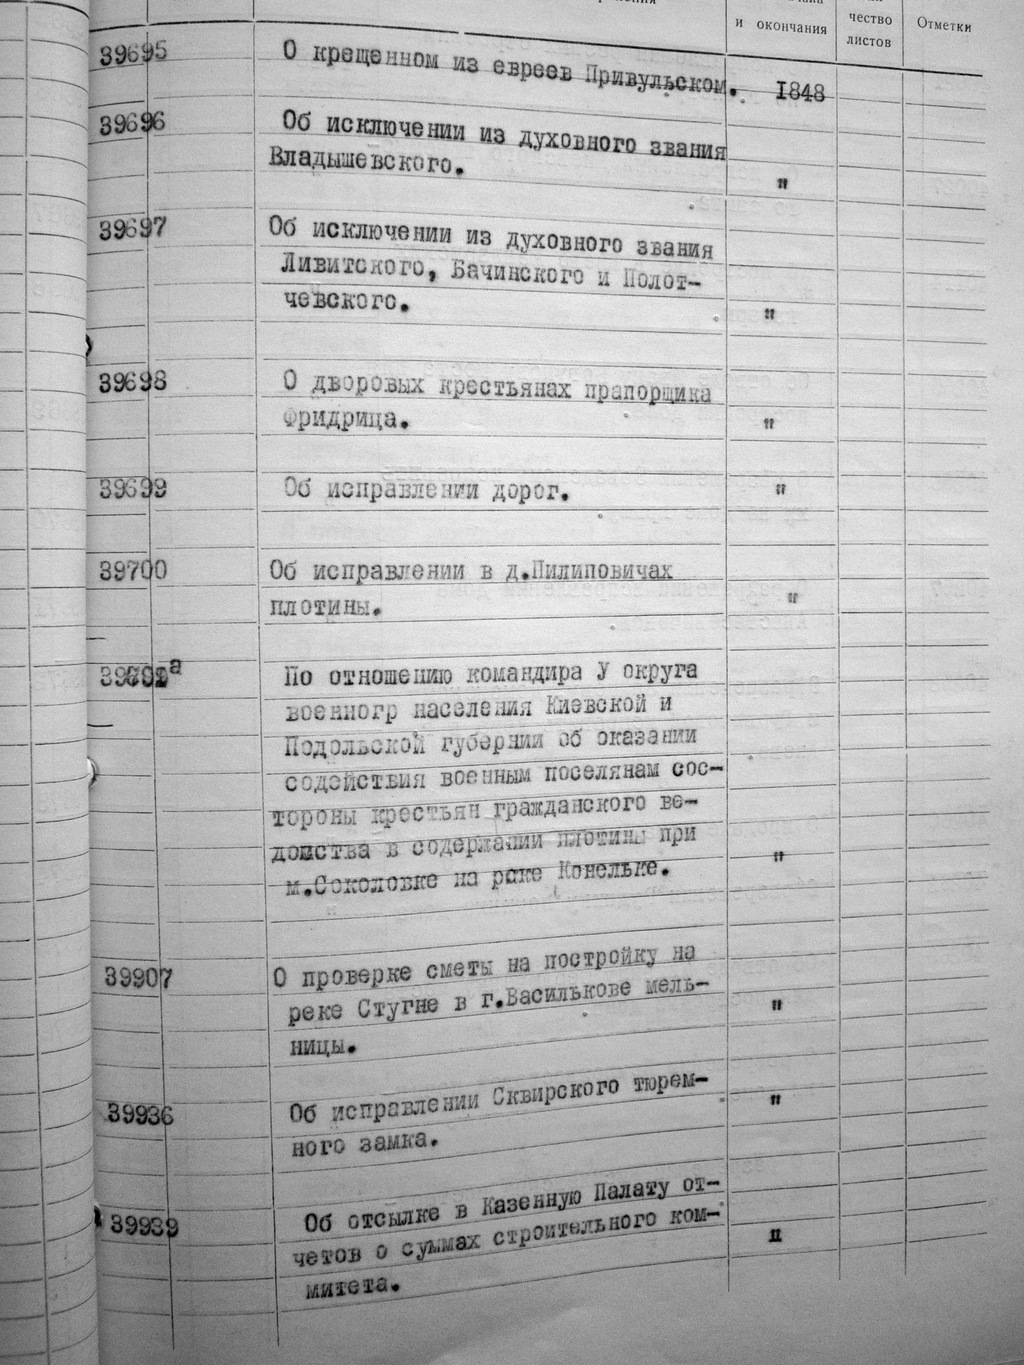 и окончания
чество
листов
Отметки
39695 О крещенном из евреев Привульском. 1848
39696 Об исключении из духовного звания
Владышевского. "
39697 Об исключении из духовного звания
Ливитского, Бачинского и Полот-
чевского. "
39698 О дворовых крестьянах прапорщика
Фридрица. "
39699 Об исправлении дорог. "
39700 Об исправлении в д.Пилиповичах
плотины. "
По отношению командира У округа
военногр населения Киевской и
Подольской губернии об оказании
содействия военным поселянам сос-
тороны крестьян гражданского ве-
домства в содержании плотины при
м.Соколовке на реке Конельке. "
39907 О проверке сметы на постройку на
реке Стугне в г.Василькове мель-
ницы. "
39936 Об исправлении Сквирского тюрем-
ного замка. "
39939 Об отсылке в Казенную Палату от-
четов о суммах строительного ком-
митета. "